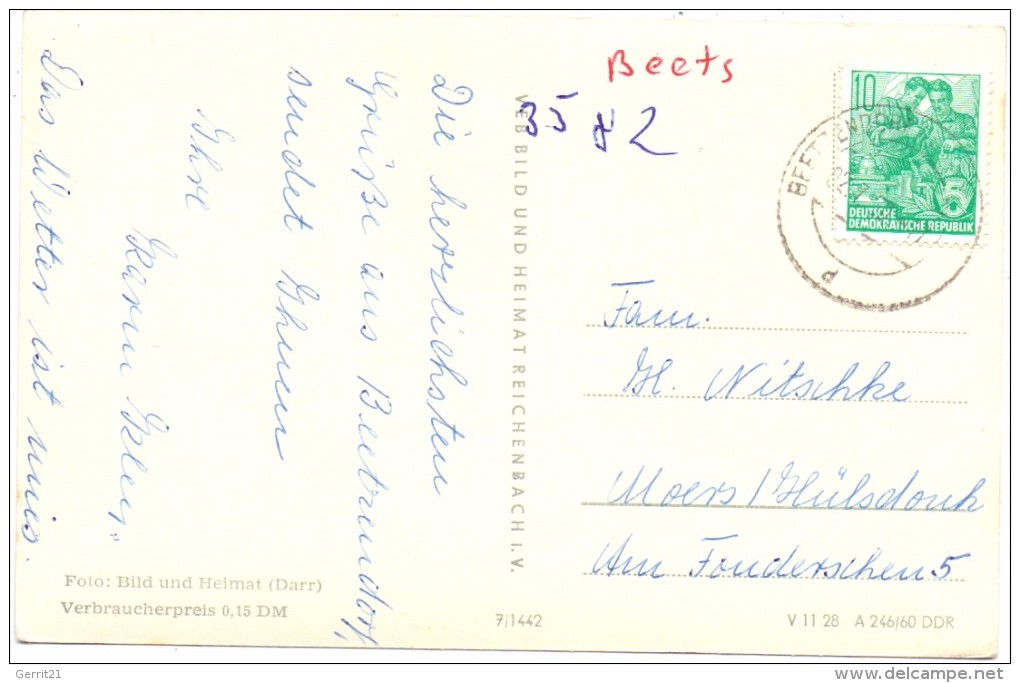 Die herzlichsten
Grüße aus Beetzendorf,
sendet Ihnen
Ihre
Karin
Das Wetter ist mies.
Foto: Bild und Heimat (Darr)
Verbraucherpreis 0,15 DM
VEB BILD UND HEIMAT REICHENBACH I. V.
7/1442
V 11 28 A 246/60 DDR
Beets
35 82
10
DEUTSCHE
DEMOKRATISCHE REPUBLIK
5
Fam.
H. Nitschke
Moers/Hülsdonk
Am Fonderschen 5
Gerrit21
www.delcampe.net